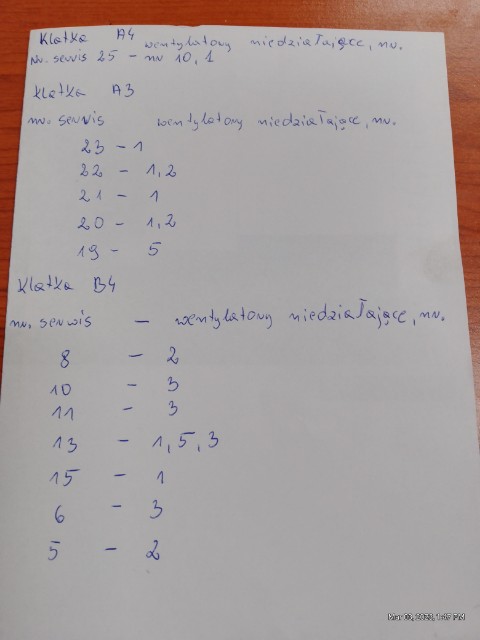 Klatka A4 wentylatory niedziałające, nr.
Nr. serwis 25 - nr 10, 1
Klatka A3
nr. serwis wentylatory niedziałające, nr.
23 - 1
22 - 1, 2
21 - 1
20 - 1, 2
19 - 5
Klatka B4
nr. serwis - wentylatory niedziałające, nr.
8 - 2
10 - 3
11 - 3
13 - 1, 5, 3
15 - 1
6 - 3
5 - 2